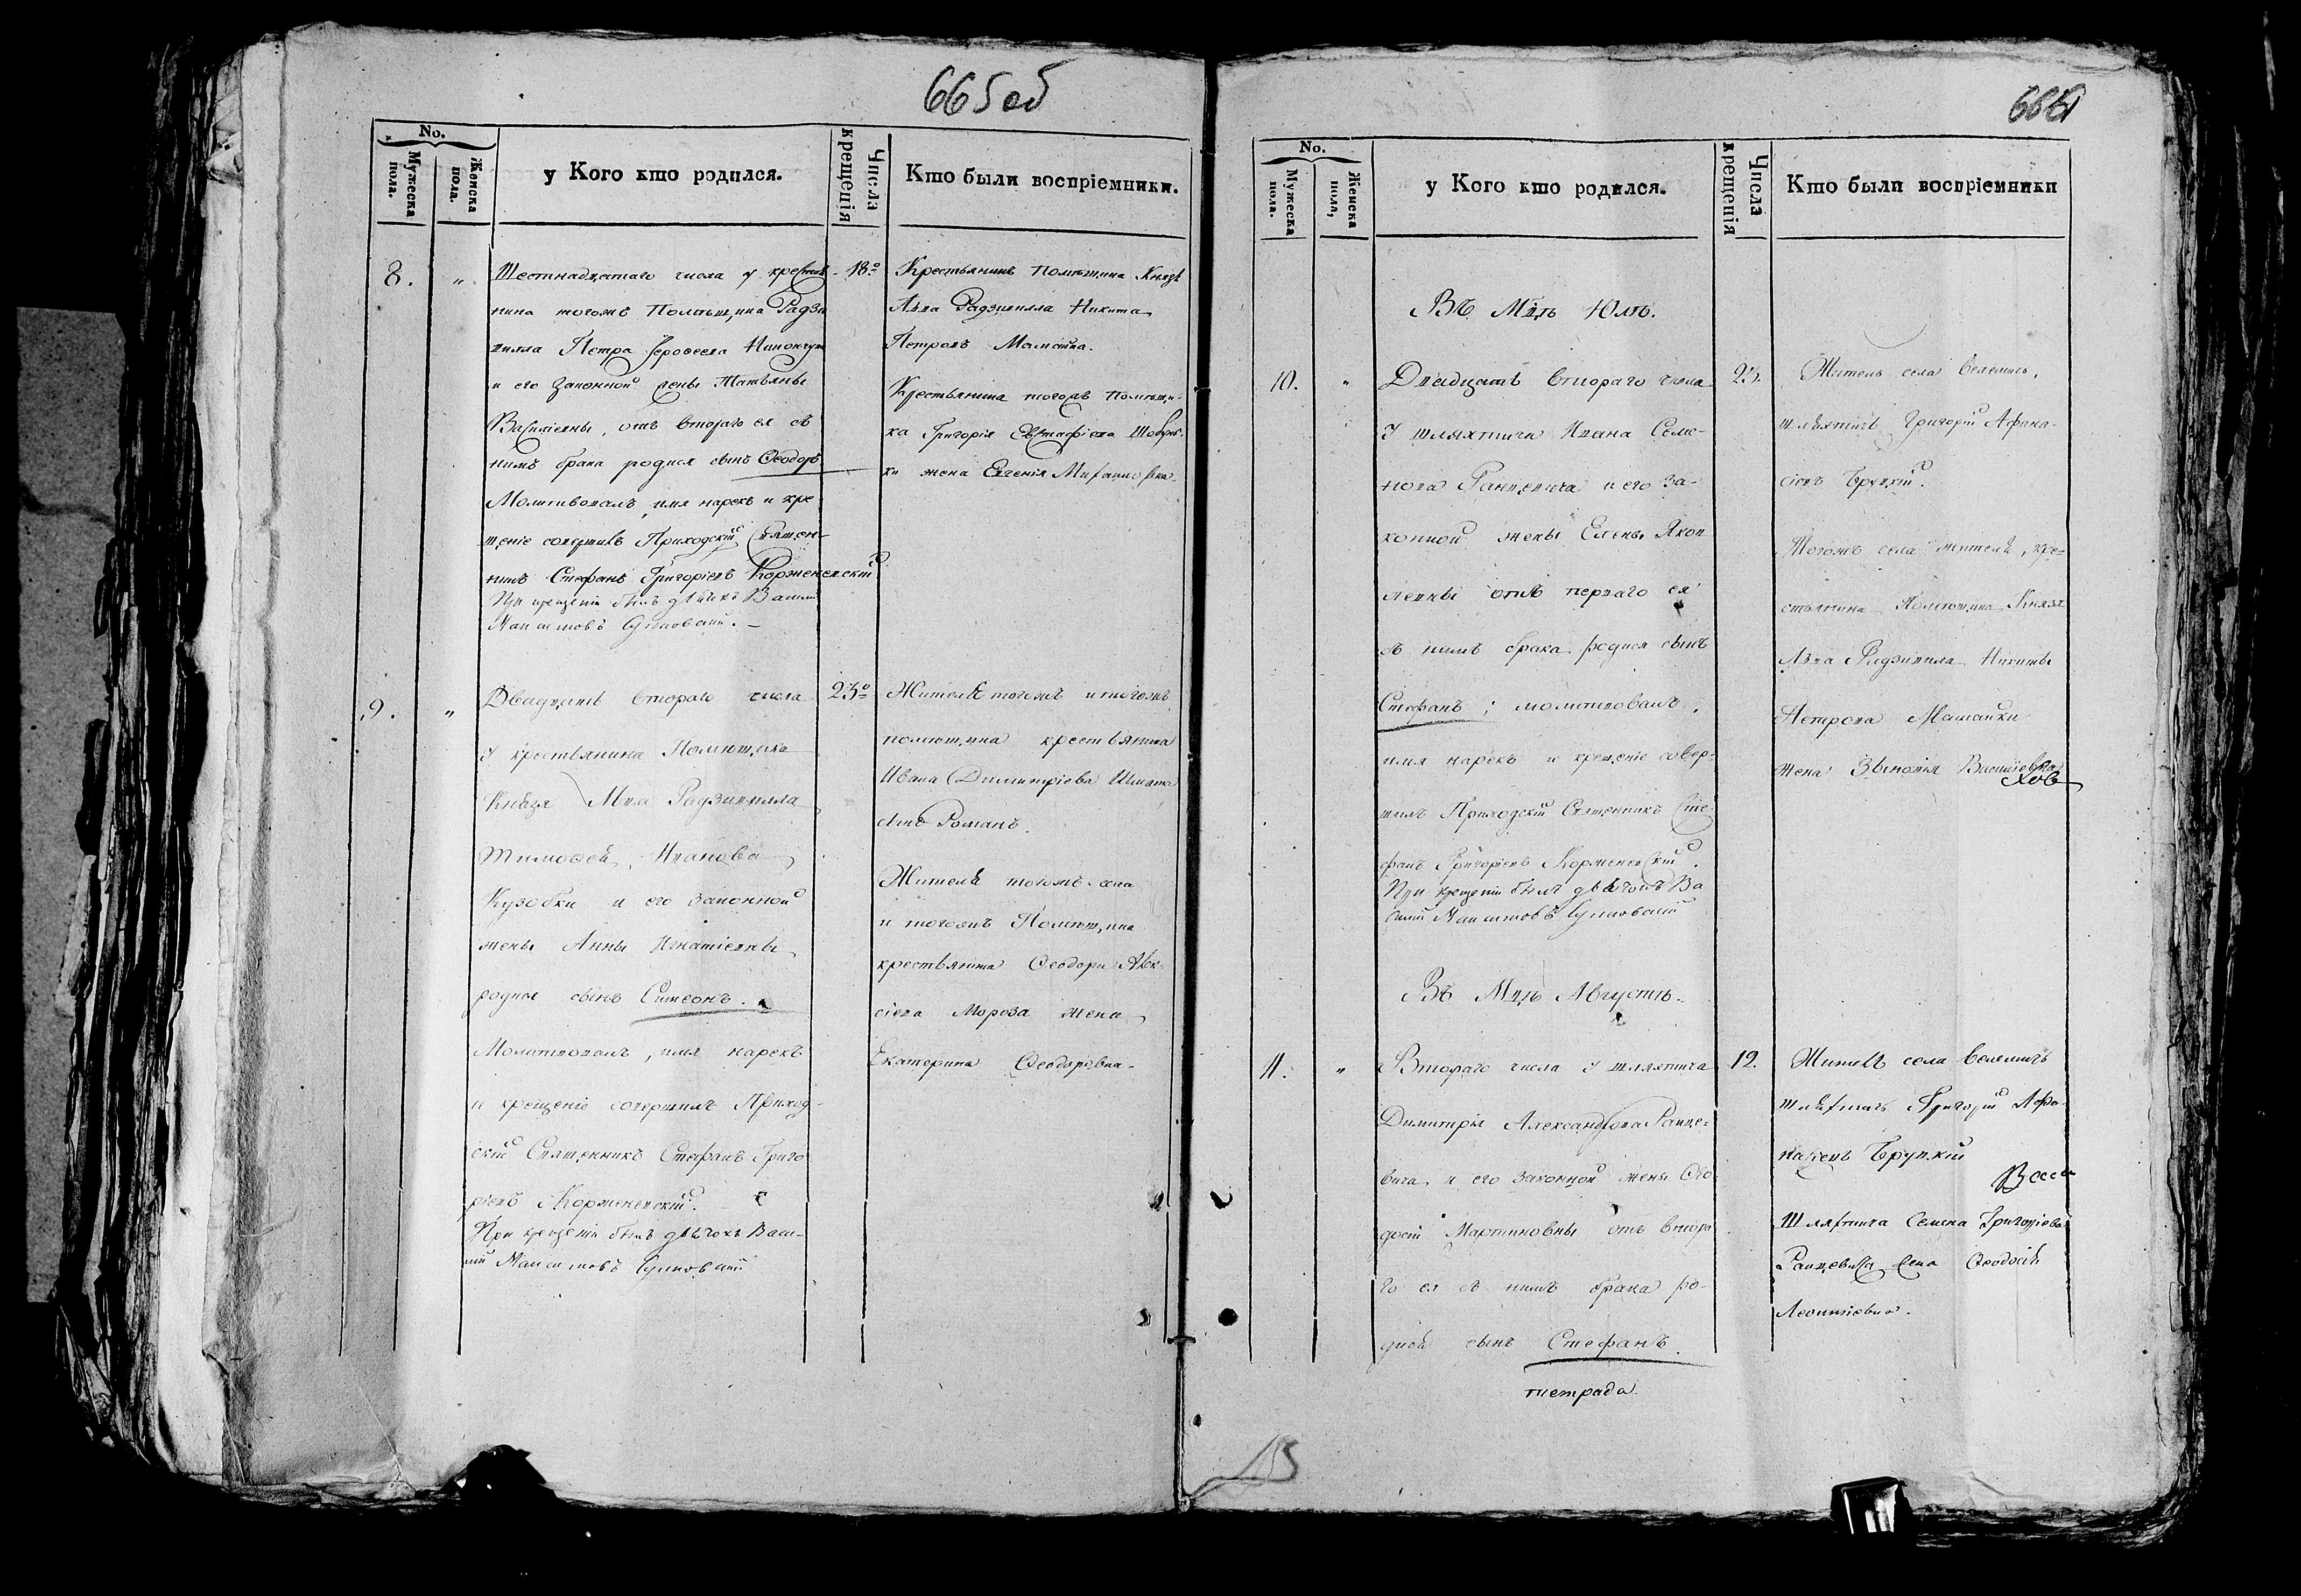 665 об
No.
Мужеска пола.
Женска пола.
у Кого кто родился.
Числа крещенія
Кто были воспріемники.
8. „ Шестнадцатаго числа у крестья-
нина тогожъ Помѣщика Радзи
вилла Петра Іерофеева
и его законной жены Татьяны
Васильевны, отъ втораго ея съ
нимъ брака родися сынъ Ѳеодоръ
Молитвовалъ, имя нарекъ и кре-
щеніе совершилъ Приходскій Священ-
никъ Стефанъ Григоріевъ Корженевскій
При крещеніи былъ дьячокъ Василій
18.
Крестьянинъ Помѣщика Князя
Льва Радзивилла Никита
Петровъ Мамайка.
Крестьянина тогожъ Помѣщи-
ка Григорія Евстафіева
жена Евгенія
9. „ Двадцать втораго числа
у крестьянина Помѣщика
Князя Льва Радзивилла
Тимоѳея Иванова
Кузобки и его законной
жены Анны Игнатіевны
родися сынъ Симеонъ.
Молитвовалъ, имя нарекъ
и крещеніе совершилъ Приход-
скій Священникъ Стефанъ Григо
ріевъ Корженевскій.
При крещеніи былъ дьячокъ Васи-
лій
23
Житель тогожъ и тогожъ
помѣщика крестьянина
Ивана Димитріева
сынъ Романъ.
Житель тогожъ села
и тогожъ Помѣщика
крестьянина Ѳеодора Алек-
сіева Мороза жена
Екатерина Ѳеодоровна.
666
No.
Мужеска пола.
Женска пола,
у Кого кто родился.
Числа крещенія
Кто были воспріемники
Въ Мцѣ Юлѣ.
10. „ Двадцать втораго числа
у шляхтича Ивана Семе-
нова Ранцевича и его за-
конной жены Елены Яков
левны отъ перваго ея
съ нимъ брака родися сынъ
Стефанъ; молитвовалъ,
имя нарекъ и крещеніе совер-
шилъ Приходскій Священникъ Сте
фанъ Григоріевъ Корженевскій.
При крещеніи былъ дьячокъ Ва
силій
23.
Житель села Велемичъ,
шляхтичъ Григорій Афана-
сіевъ Бруцкій.
Тогожъ села жителя, кре-
стьянина Помѣщика Князя
Льва Радзивила Никиты
Петрова Мамайки
жена Зѣновія Васильевна
Въ Мцѣ Августѣ.
11. „ Втораго числа у шляхтича
Димитрія Александрова Ранце-
вича и его законной жены Ѳео
досіи Мартиновны отъ втора
го ея съ нимъ брака ро-
дися сынъ Стефанъ.
12.
Житель села Велемичъ
шляхтичъ Григорій Афа-
насіевъ Бруцкій
Шляхтича Семена Григоріева
Ранцевича жена Ѳеодосія
Леонтіевна.
тетрада.